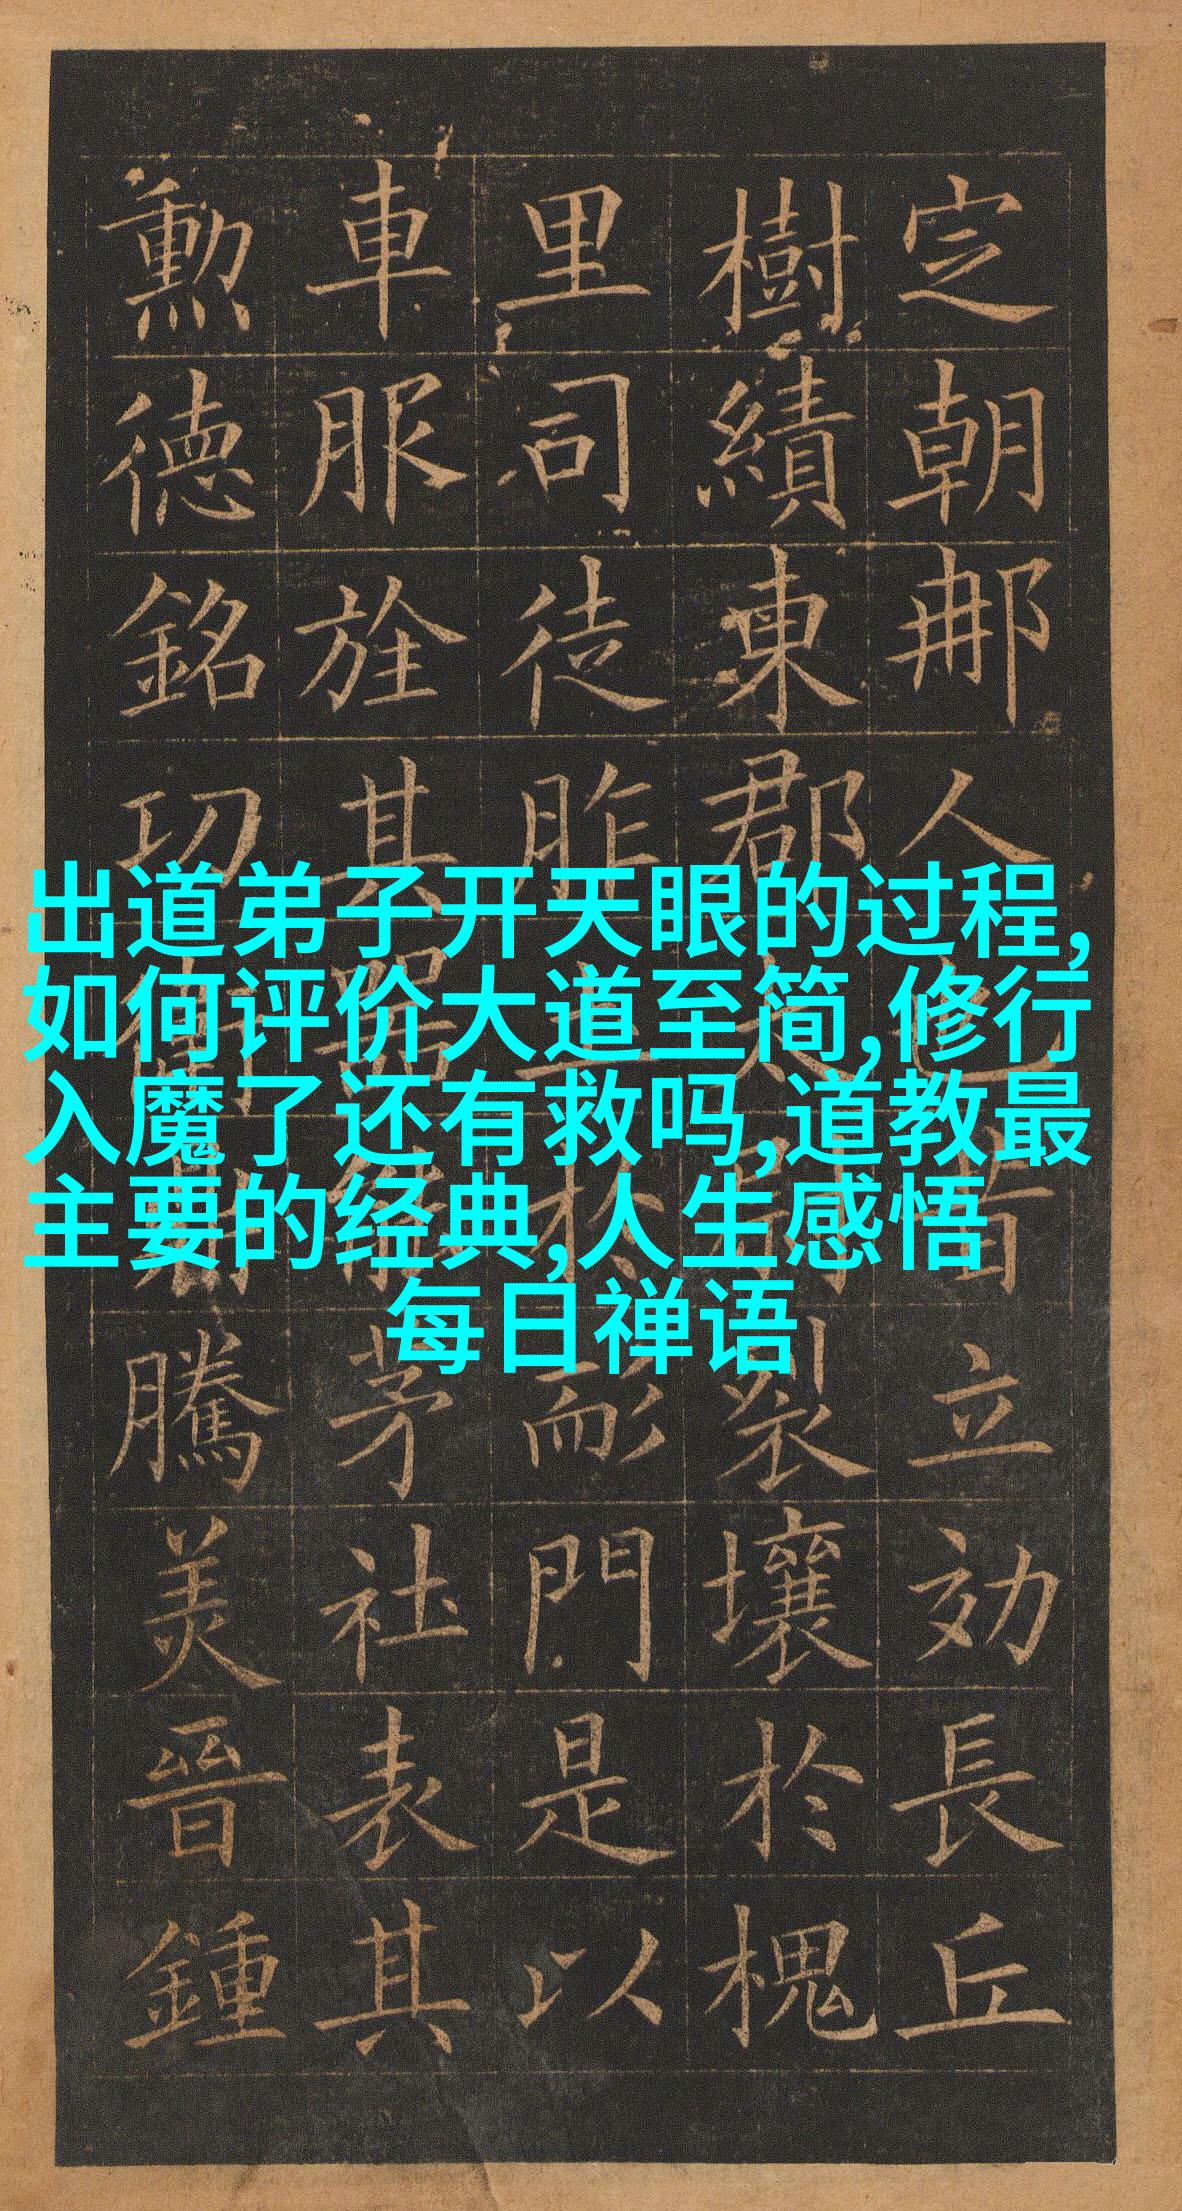 定朝那人也昔立効長丘
樹績東郡太尉裂壤於槐
里司徒胙土於耏門是以
車服旌其器能茅社表其
勳德銘功衛鼎騰美晉鍾
出道弟子开天眼的过程,
如何评价大道至简,修行
入魔了还有救吗,道教最
主要的经典,人生感悟
每日禅语